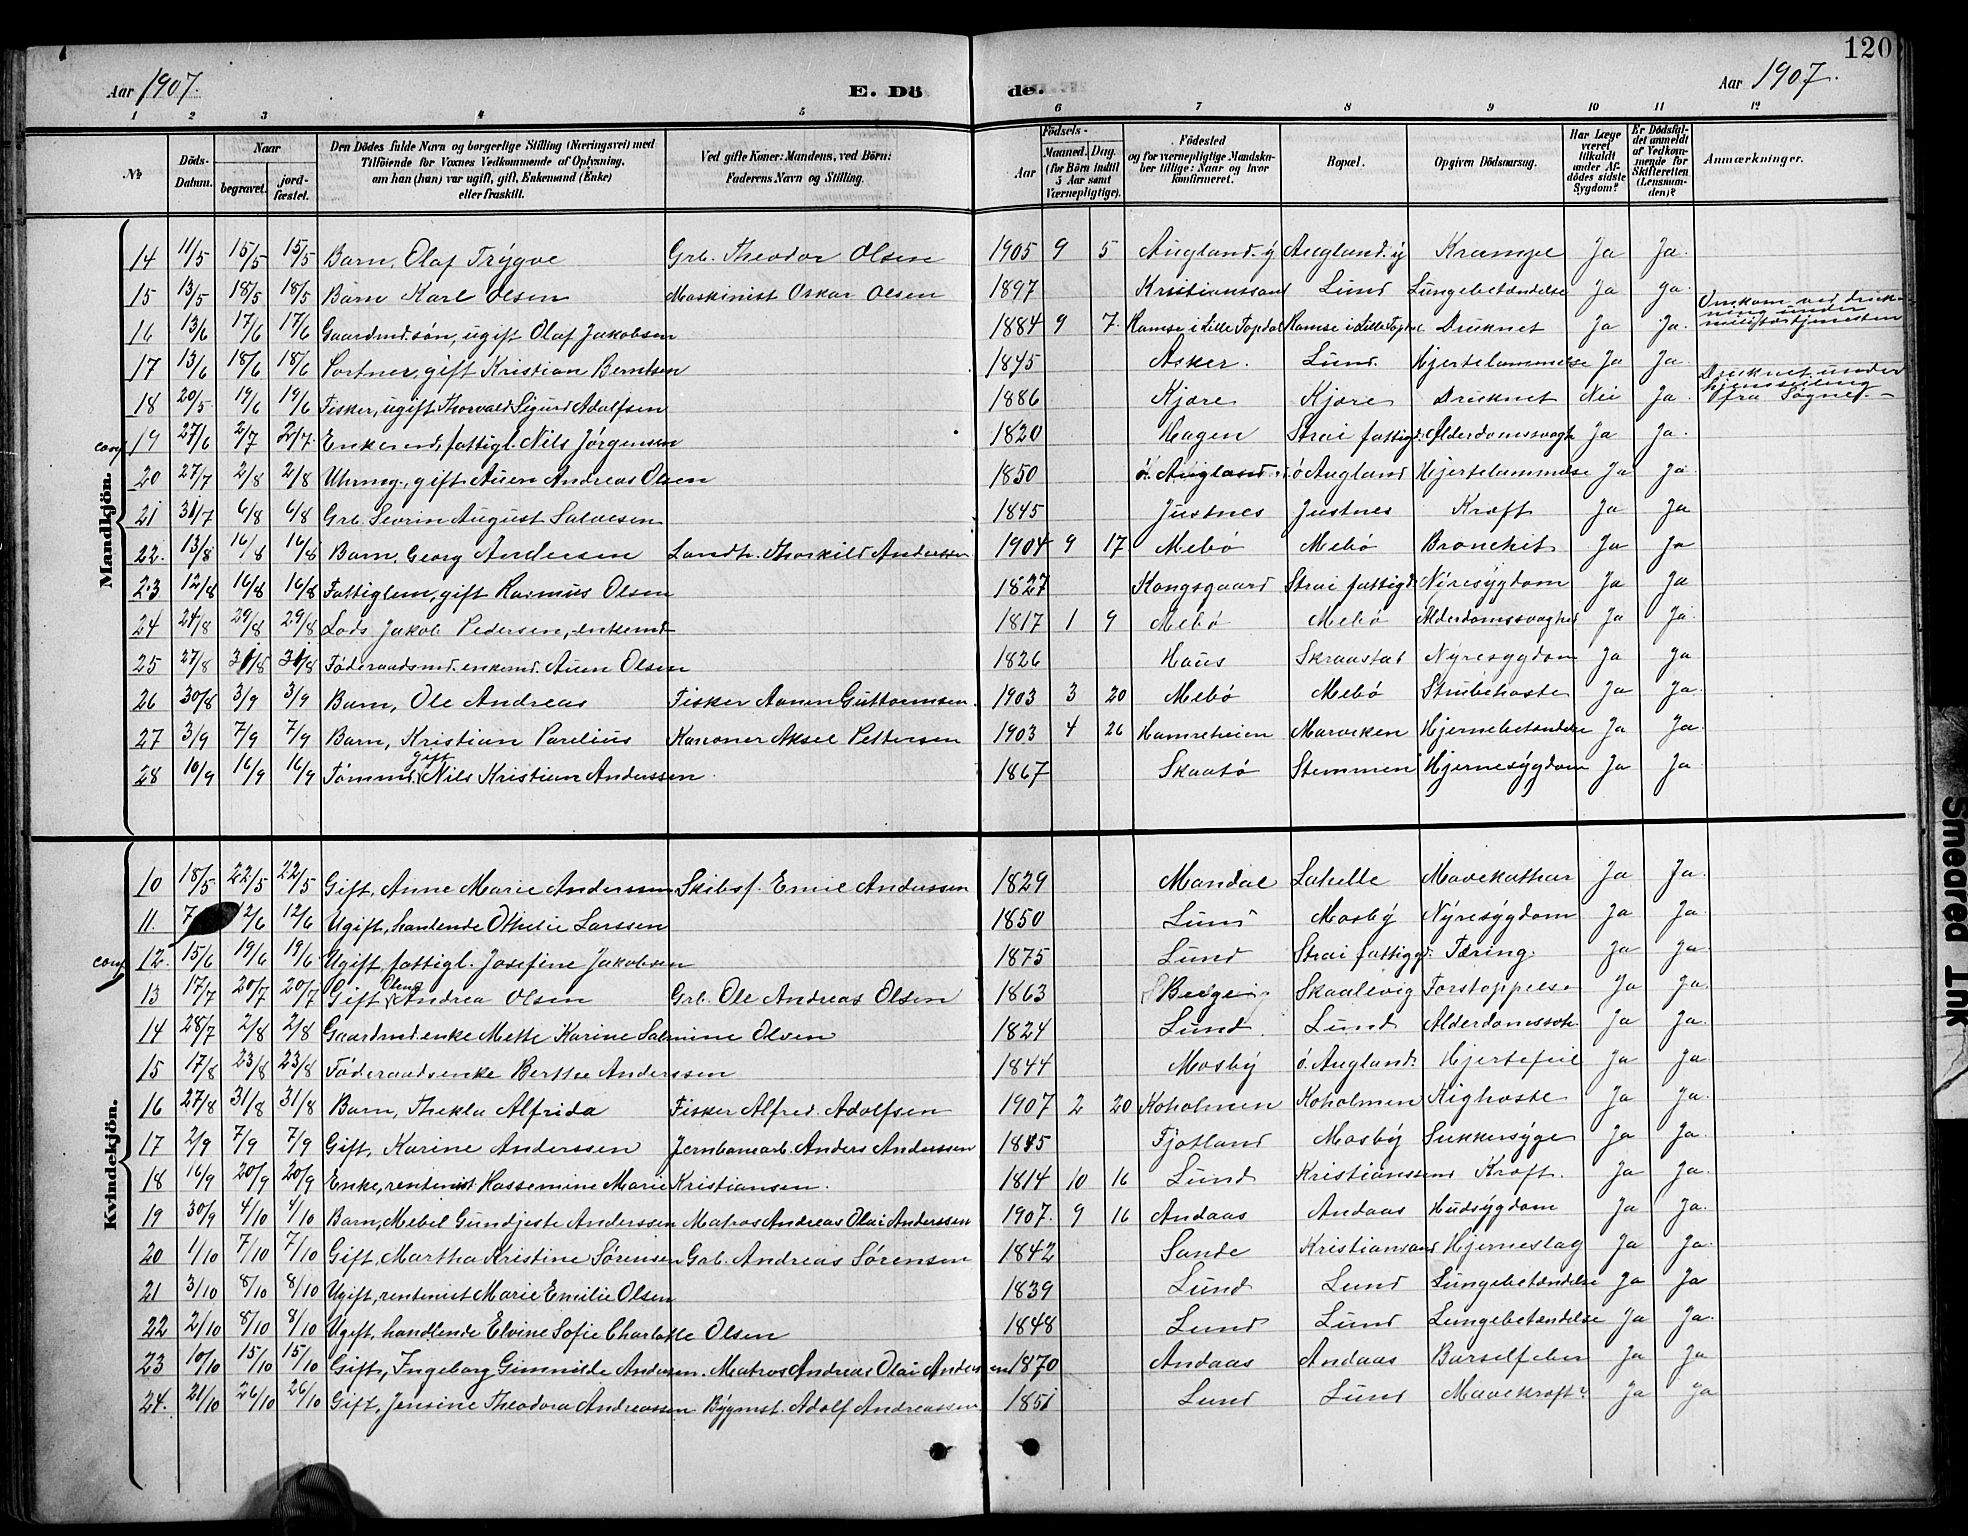 120
Aar 1907. E. Dö de. Aar 1907.
1 2 3 4 5 6 7 8 9 10 11 12
No Döds-Datum. Naar begravet. jord-fæstet. Den Dödes fulde Navn og borgerlige Stilling (Næringsvei) med Tilföiende for Voxnes Vedkommende af Oplysning, om han (hun) var ugift, gift, Enkemand (Enke) eller fraskilt. Ved gifte Koner: Mandens, ved Börn: Faderens Navn og Stilling. Födsels- Aar Maaned. Dag. (for Börn indtil 5 Aar samt Værnepligtige). Födested og for værnepligtige Mandskaber tillige: Naar og hvor konfirmeret. Bopæl. Opgiven Dödsaarsag. Har Læge været tilkaldt under Afdödes sidste Sygdom? Er Dödsfaldet anmeldt af Vedkommende for Skifteretten (Lensmanden)? Anmærkninger.
Mandkjön.
14 11/5 15/5 15/5 Barn, Olaf Trygve Grb. Theodor Olsen 1905 9 5 Augland. y Augland. y Krampe Ja Ja.
15 13/5 18/5 18/5 Barn Karl Olsen Maskinist Oskar Olsen 1897 Kristianssand Lund Lungebetændelse Ja Ja.
16 13/6 17/6 17/6 Gaardmd. søn, ugift Olaf Jakobsen 1884 9 7. Ramse i Lille Topdal Ramse i Lille Topdal Druknet Ja Ja. Omkom ved drukning under
17 13/6 18/6 18/6 Portner, gift Kristian Berntsen 1845 Asker. Lund. Hjertelammelse Ja Ja
18 20/5 19/6 19/6 Fisker, ugift Thorvald Sigurd Adolfsen 1886 Kjære Kjære Druknet Nei Ja. Druknet under hjemseiling fra Søgne. -
conf 19 27/6 2/7 2/7. Enkemd, fattigl. Nils Jørgensen 1820 Hagen Strai fattigd. Alderdomssvagh Ja Ja.
20 27/7 2/8 2/8 Uhrmg., gift Auen Andreas Olsen 1850 ø. Augland ø Augland Hjertelammelse Ja Ja
21 31/7 6/8 6/8 Grb. Sevrin August Salvesen 1845 Justnes Justnes Kræft Ja Ja
22. 13/8 16/8 16/8 Barn, Georg Andersen Landh. Thorkild Anderssen 1904 9 17 Mebø Mebø Bronchit Ja Ja
23 12/8 16/8 16/8 Fattiglem, gift Rasmus Olsen 1827 Kongsgaard Strai fattigd Nyresygdom Ja Ja
24 24/8 29/8 29/8 Lods Jakob Pedersen, enkemd 1817 1 9 Mebø Mebø Alderdomssvaghed Ja Ja.
25 27/8 31/8 31/8 Føderaadsmd. enkemd. Auen Olsen 1826 Haus Skraastad Nyresygdom Ja Ja
26 30/8 3/9 3/9 Barn, Ole Andreas Fisker Aanen Guttormsen. 1903 3 20 Mebø Mebø Strubehoste Ja Ja.
27 3/9 7/9 7/9 Barn, Kristian Parelius Kanoner Aksel Pettersen 1903 4 26 Hamreheien Marviken Hjernebetændelse Ja Ja.
28 10/9 16/9 16/9 Tømmd. gift Nils Kristian Anderssen. 1867 Skaatø Stemmen Hjernesygdom Ja Ja.
Kvindekjön.
10 18/5 22/5 22/5 Gift, Anne Marie Anderssen Skibsf. Emil Anderssen 1829 Mandal Lahelle Mavekathar Ja Ja.
11. 7 12/6 12/6 Ugift, handlende Othelie Larssen 1850 Lund Mosby Nyresygdom Ja Ja.
conf 12. 15/6 19/6 19/6 Ugift, fattigl. Josefine Jakobsen 1875 Lund Strai fattiggd. Tæring. Ja Ja.
13 17/7 20/7 20/7 Gift, Olena Andrea Olsen Grb. Ole Andreas Olsen 1863 Skaalevig Forstoppelse Ja Ja.
14 28/7 2/8 2/8 Gaardmd.enke Mette Karine Salmine Olsen 1824 Lund. Lund Alderdomssvh Ja Ja.
15 17/8 23/8 23/8 Føderaadsenke Berthe Anderssen 1844 Mosby ø. Augland. Hjertefeil Ja Ja.
16 27/8 31/8 31/8 Barn, Thekla Alfrida Fisker Alfred. Adolfsen 1907 2 20 Koholmen Koholmen Kighoste Ja Ja.
17 2/9 7/9 7/9 Gift, Karine Anderssen Jernbanearb. Anders Anderssen 1845 Fjotland Mosby Sukkersyge Ja Ja.
18 16/9 20/9 20/9 Enke, rentenist Hassemine Marie Kristiansen. 1814 10 16 Lund Kristianssand Kræft. Ja Ja.
19 30/9 4/10 4/10 Barn, Mebil Gundjeste Anderssen Matros Andreas Olai Anderssen 1907. 9 16 Andaas Andaas Hudsygdom Ja Ja.
20 1/10 7/10 7/10 Gift, Martha Kristine Sørensen Grb. Andreas Sørensen 1842 Sande Kristiansand Hjerneslag Ja Ja.
21 3/10 8/10 8/10 Ugift, rentenist Marie Emilie Olsen 1839 Lund Lund Lungebetændelse Ja Ja
22 2/10 8/10 8/10 Ugift, handlende Elvine Sofie Charlotte Olsen 1848 Lund Lund Lungebetændelse Ja Ja.
23 10/10 15/10 15/10 Gift, Ingeborg Gunnilde Andersen. Matros Andreas Olai Andersen 1870 Andaas Andaas Barselfeber Ja Ja
24. 21/10 26/10 26/10 Gift, Jensine Theodora Andreassen Bygmst. Adolf Andreassen 1851 Lund Lund Mavekræft Ja Ja
Smeared Ink